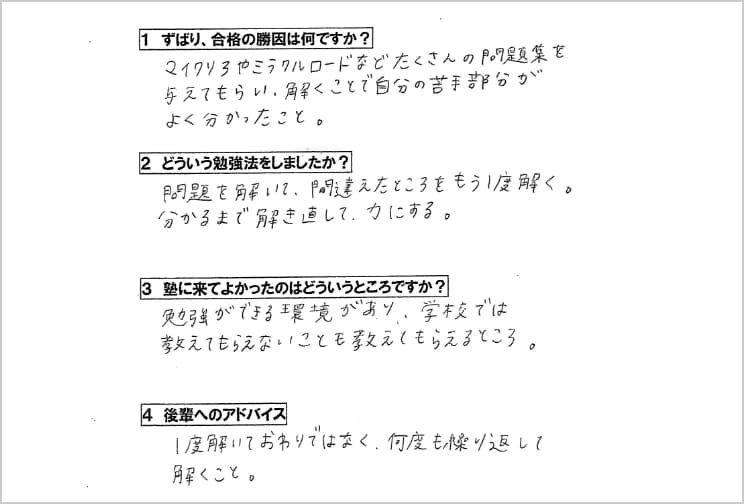 1 ずばり、合格の勝因は何ですか？
マイクリ3やミラクルロードなどたくさんの問題集を
与えてもらい、解くことで自分の苦手部分が
よく分かったこと。
2 どういう勉強法をしましたか？
問題を解いて、間違えたところをもう1度解く。
分かるまで解き直して、力にする。
3 塾に来てよかったのはどういうところですか？
勉強ができる環境があり、学校では
教えてもらえないことも教えてもらえるところ。
4 後輩へのアドバイス
1度解いておわりではなく、何度も繰り返して
解くこと。